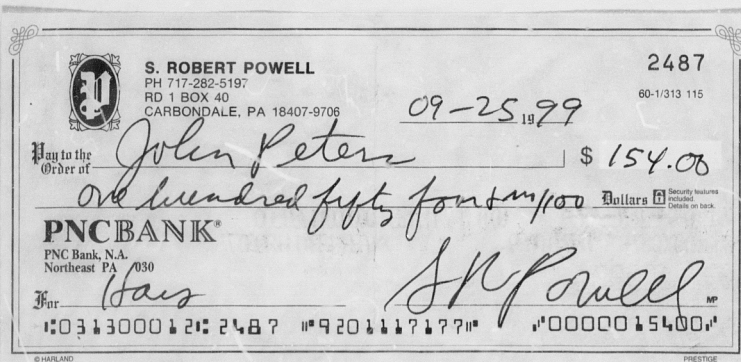 S. ROBERT POWELL
PH 717-282-5197
RD 1 BOX 40
CARBONDALE, PA 18407-9706
2487
60-1/313 115
09-25 1999
Pay to the Order of John Peters $ 154.00
one hundred fifty four + no/100 Dollars
Security features included. Details on back.
PNCBANK®
PNC Bank, N.A.
Northeast PA 030
For S R Powell MP
⑆031300012⑆ 2487 ⑈9201117177⑈ ⑈0000015400⑈
© HARLAND PRESTIGE